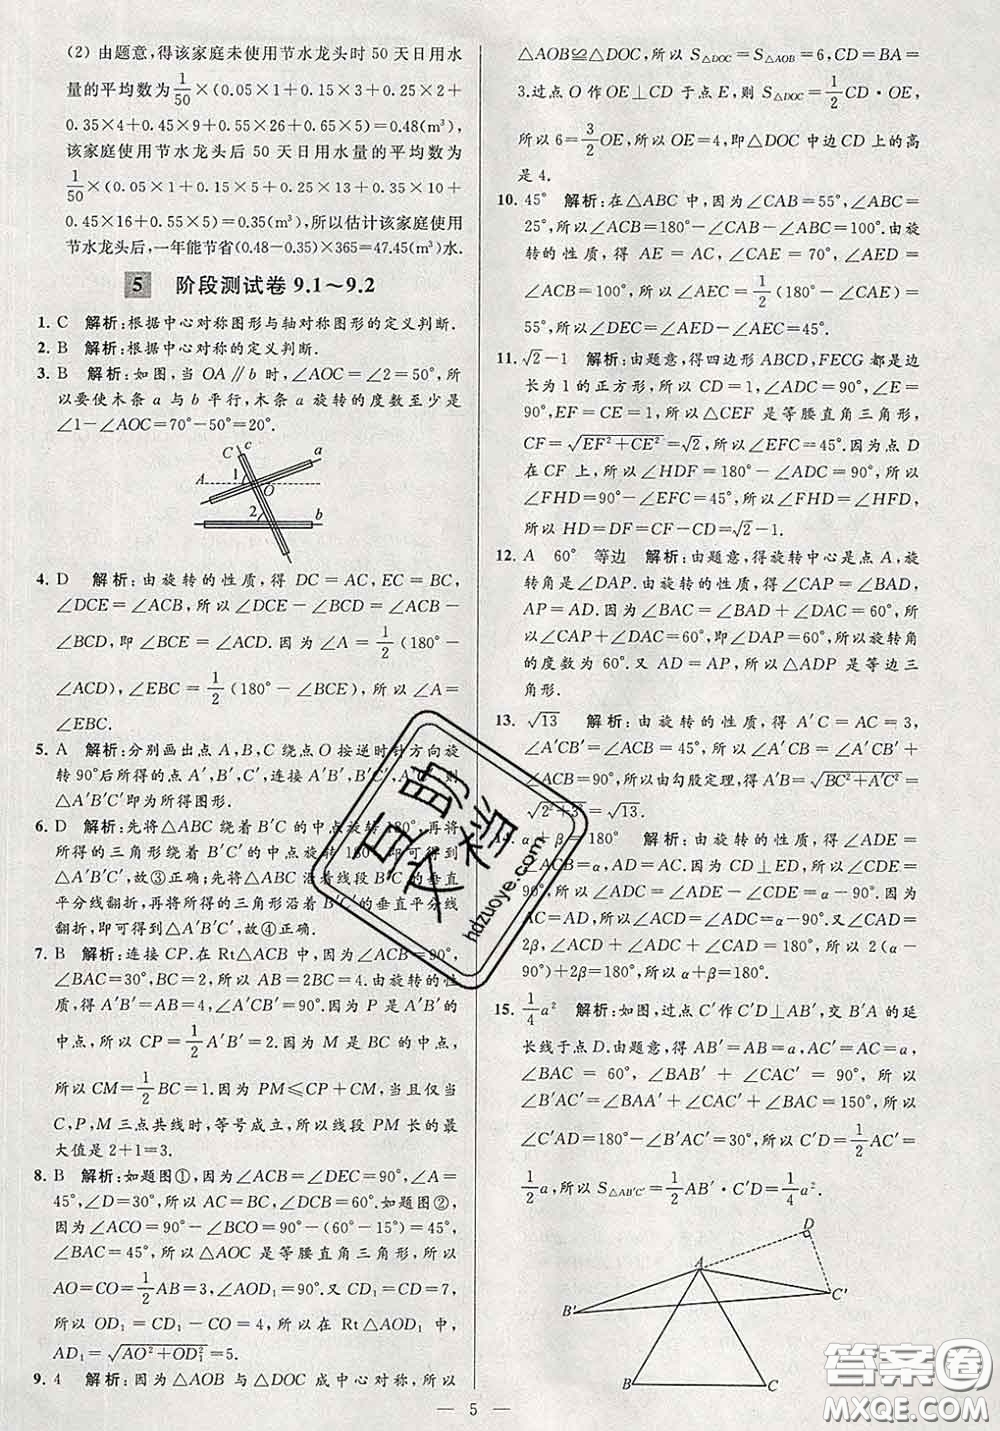 (2) 由题意,得该家庭未使用节水龙头时 50 天日用水
量的平均数为1/50×(0.05×1+0.15×3+0.25×2+
0.35×4+0.45×9+0.55×26+0.65×5)=0.48(m³),
该家庭使用节水龙头后 50 天日用水量的平均数为
1/50×(0.05×1+0.15×5+0.25×13+0.35×10+
0.45×16+0.55×5)=0.35(m³),所以估计该家庭使用
节水龙头后,一年能节省(0.48-0.35)×365=47.45(m³)水.
5 阶段测试卷 9.1~9.2
1. C 解析:根据中心对称图形与轴对称图形的定义判断.
2. B 解析:根据中心对称的定义判断.
3. B 解析:如图,当 OA∥b 时,∠AOC=∠2=50°,所
以要使木条 a 与 b 平行,木条 a 旋转的度数至少是
∠1-∠AOC=70°-50°=20°.
C c a
A 1 O
2 b
4. D 解析:由旋转的性质,得 DC=AC,EC=BC,
∠DCE=∠ACB,所以∠DCE-∠BCD=∠ACB-
∠BCD,即∠BCE=∠ACD.因为∠A=1/2(180°-
∠ACD),∠EBC=1/2(180°-∠BCE),所以∠A=
∠EBC.
5. A 解析:分别画出点 A,B,C 绕点 O 按逆时针方向旋
转 90°后所得的点 A′,B′,C′,连接 A′B′,B′C′,A′C′,则
△A′B′C′即为所得图形.
6. D 解析:先将△ABC 绕着 B′C 的中点旋转 180°,再将
所得的三角形绕着 B′C′的中点旋转 180°,即可得到
△A′B′C′,故③正确;先将△ABC 沿着线段 B′C 的垂直
平分线翻折,再将所得的三角形沿着 B′C′的垂直平分线
翻折,即可得到△A′B′C′,故④正确.
7. B 解析:连接 CP.在 Rt△ACB 中,因为∠ACB=90°,
∠BAC=30°,BC=2,所以 AB=2BC=4.由旋转的性
质,得 A′B′=AB=4,∠A′CB′=90°.因为 P 是 A′B′的
中点,所以 CP=1/2A′B′=2.因为 M 是 BC 的中点,
所以 CM=1/2BC=1.因为 PM≤CP+CM,当且仅当
C,P,M 三点共线时,等号成立,所以线段 PM 长的最
大值是 2+1=3.
8. B 解析:如题图①,因为∠ACB=∠DEC=90°,∠A=
45°,∠D=30°,所以 AC=BC,∠DCB=60°.如题图②,
因为∠ACO=90°-∠BCO=90°-(60°-15°)=45°,
∠BAC=45°,所以△AOC 是等腰直角三角形,所以
AO=CO=1/2AB=3,∠AOD₁=90°.又 CD₁=CD=7,
所以 OD₁=CD₁-CO=4,所以在 Rt△AOD₁ 中,
AD₁=√(AO²+OD₁²)=5.
9. 4 解析:因为△AOB 与△DOC 成中心对称,所以
△AOB≌△DOC,所以 S△DOC=S△AOB=6,CD=BA=
3.过点 O 作 OE⊥CD 于点 E,则 S△DOC=1/2CD·OE,
所以 6=3/2OE,所以 OE=4,即△DOC 中 CD 边上的高
是 4.
10. 45° 解析:在△ABC 中,因为∠CAB=55°,∠ABC=
25°,所以∠ACB=180°-∠CAB-∠ABC=100°.由旋
转的性质,得 AE=AC,∠CAE=70°,∠AED=
∠ACB=100°,所以∠AEC=1/2(180°-∠CAE)=
55°,所以∠DEC=∠AED-∠AEC=45°.
11. √2-1 解析:由题意,得四边形 ABCD,FECG 都是边
长为 1 的正方形,所以 CD=1,∠ADC=90°,∠E=
90°,EF=CE=1,所以△CEF 是等腰直角三角形,
CF=√(EF²+CE²)=√2,所以∠EFC=45°.因为点 D
在 CF 上,所以∠HDF=180°-∠ADC=90°,所以
∠FHD=90°-∠EFC=45°,所以∠FHD=∠HFD,
所以 HD=DF=CF-CD=√2-1.
12. A 60° 等边 解析:由题意,得旋转中心是点 A,旋
转角是∠DAP.由旋转的性质,得∠CAP=∠BAD,
AP=AD.因为∠BAC=∠BAD+∠DAC=60°,所以
∠CAP+∠DAC=60°,即∠DAP=60°,所以旋转角
的度数为 60°.又 AD=AP,所以△ADP 是等边三
角形.
13. √13 解析:由旋转的性质,得 A′C=AC=3,
∠A′CB′=∠ACB=45°,所以∠A′CB=∠A′CB′+
∠ACB=90°,所以由勾股定理,得 A′B=√(BC²+A′C²)=
√(2²+3²)=√13.
14. α+β=180° 解析:由旋转的性质,得∠ADE=
∠ACB=α,AD=AC.因为 CD⊥ED,所以∠CDE=
90°,所以∠ADC=∠ADE-∠CDE=α-90°.因为
AC=AD,所以∠ACD=∠ADC=α-90°.又∠CAD=
2β,∠ACD+∠ADC+∠CAD=180°,所以 2(α-
90°)+2β=180°,所以 α+β=180°.
15. 1/4a² 解析:如图,过点 C′作 C′D⊥AB′,交 B′A 的延
长线于点 D.由题意,得 AB′=AB=a,AC′=AC=a,
∠BAC=60°,∠BAB′+∠CAC′=90°,所以
∠B′AC′=∠BAA′+∠CAC′+∠BAC=150°,所以
∠C′AD=180°-∠B′AC′=30°,所以 C′D=1/2AC′=
1/2a,所以 S△AB′C′=1/2AB′·C′D=1/4a².
D
A
B′ C′
B C
早助
文档
hdzuoye.com
答案卷
MXQE.COM
— 5 —